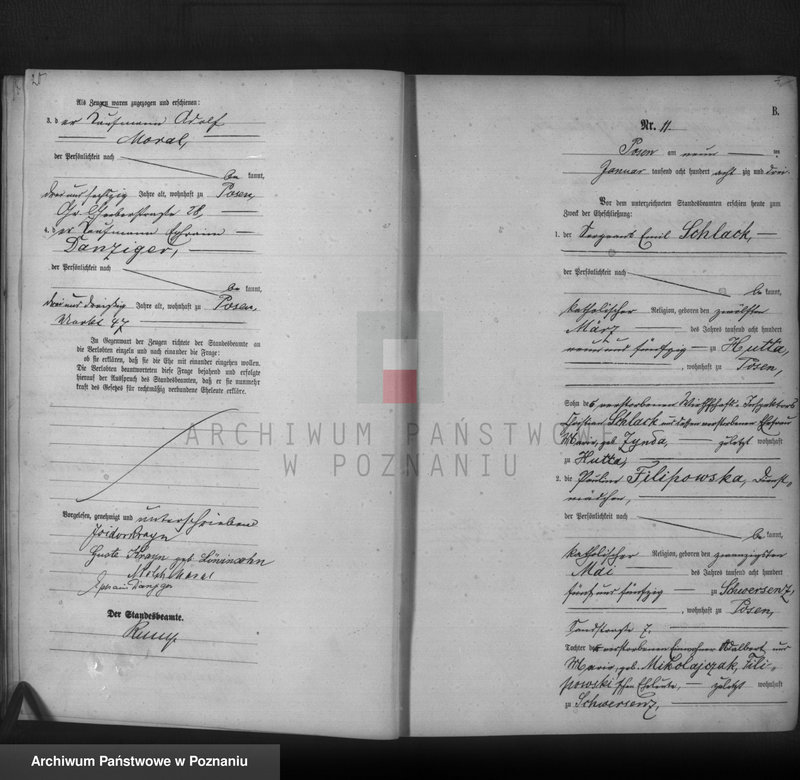 25
Als Zeugen waren zugezogen und erschienen:
3. der Kaufmann Adolf
Moral,
der Persönlichkeit nach
be kannt,
drei und sechszig Jahre alt, wohnhaft zu Posen,
Gr. Gerberstraße 28,
4. der Kaufmann Ephraim
Danziger,
der Persönlichkeit nach
be kannt,
drei und dreißig Jahre alt, wohnhaft zu Posen,
Markt 47
In Gegenwart der Zeugen richtete der Standesbeamte an
die Verlobten einzeln und nach einander die Frage:
ob sie erklären, daß sie die Ehe mit einander eingehen wollen.
Die Verlobten beantworteten diese Frage bejahend und erfolgte
hierauf der Ausspruch des Standesbeamten, daß er sie nunmehr
kraft des Gesetzes für rechtmäßig verbundene Eheleute erkläre.
Vorgelesen, genehmigt und unterschrieben
Isidor
geb.
Adolph Moral
Ephraim Danziger
Der Standesbeamte.
B.
Nr. 11.
Posen am neun ten
Januar tausend acht hundert acht zig und drei.
Vor dem unterzeichneten Standesbeamten erschien heute zum
Zweck der Eheschließung:
1. der Sergeant Emil Schlack,
der Persönlichkeit nach
be kannt,
katholischer Religion, geboren den zwölften
März des Jahres tausend acht hundert
neun und fünfzig zu Hutta,
, wohnhaft zu Posen,
Sohn des verstorbenen Wirthschafts-Inspektors
Schlack und dessen verstorbenen Ehefrau
Marie, geb. Zynda, zuletzt wohnhaft
zu Hutta,
2. die Pauline Filipowska, Dienst-
mädchen,
der Persönlichkeit nach
be kannt,
katholischer Religion, geboren den zwanzigsten
Mai des Jahres tausend acht hundert
fünf und fünfzig zu Schwersenz,
, wohnhaft zu Posen,
Sandstraße 7.
Tochter der verstorbenen Einwohner Adalbert und
Marie, geb. Mikolajczak, Fili-
powski'schen Eheleute, zuletzt wohnhaft
zu Schwersenz,
ARCHIWUM PAŃSTWOWE
W POZNANIU
Archiwum Państwowe w Poznaniu